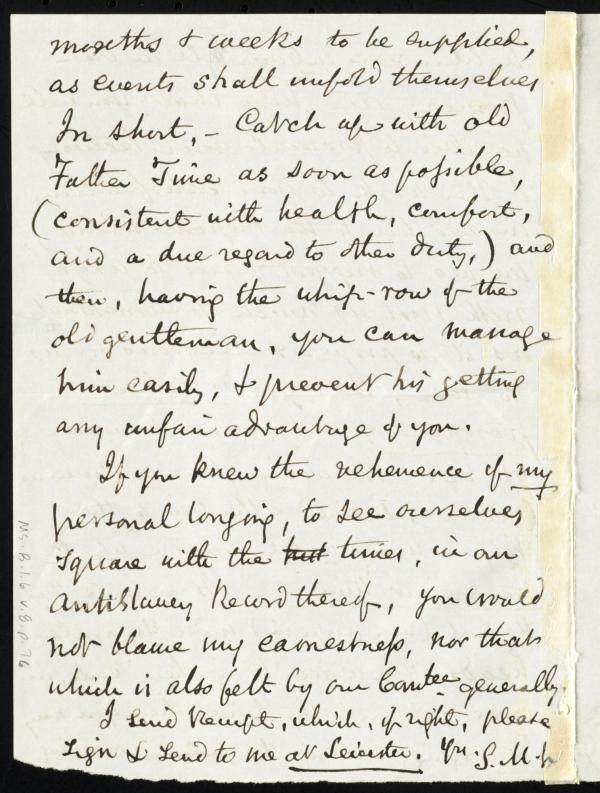 months & weeks to be supplied,
as events shall unfold themselves
In short, – Catch up with old
Father Time as soon as possible,
(consistent with health, comfort,
and a due regard to other duty,) and
then, having the whip-row of the
old gentleman, you can manage
him easily, & prevent his getting
any unfair advantage of you.
If you knew the vehemence of my
personal longing, to see ourselves
square with the times, in our
Antislavery Record thereof, you would
not blame my earnestness, nor that
which is also felt by our Comtee generally.
I send receipt, which, if right, please
sign & send to me at Leicester. Yrs. S. M. Jr
Ms. B.1.6 v.8 p.76